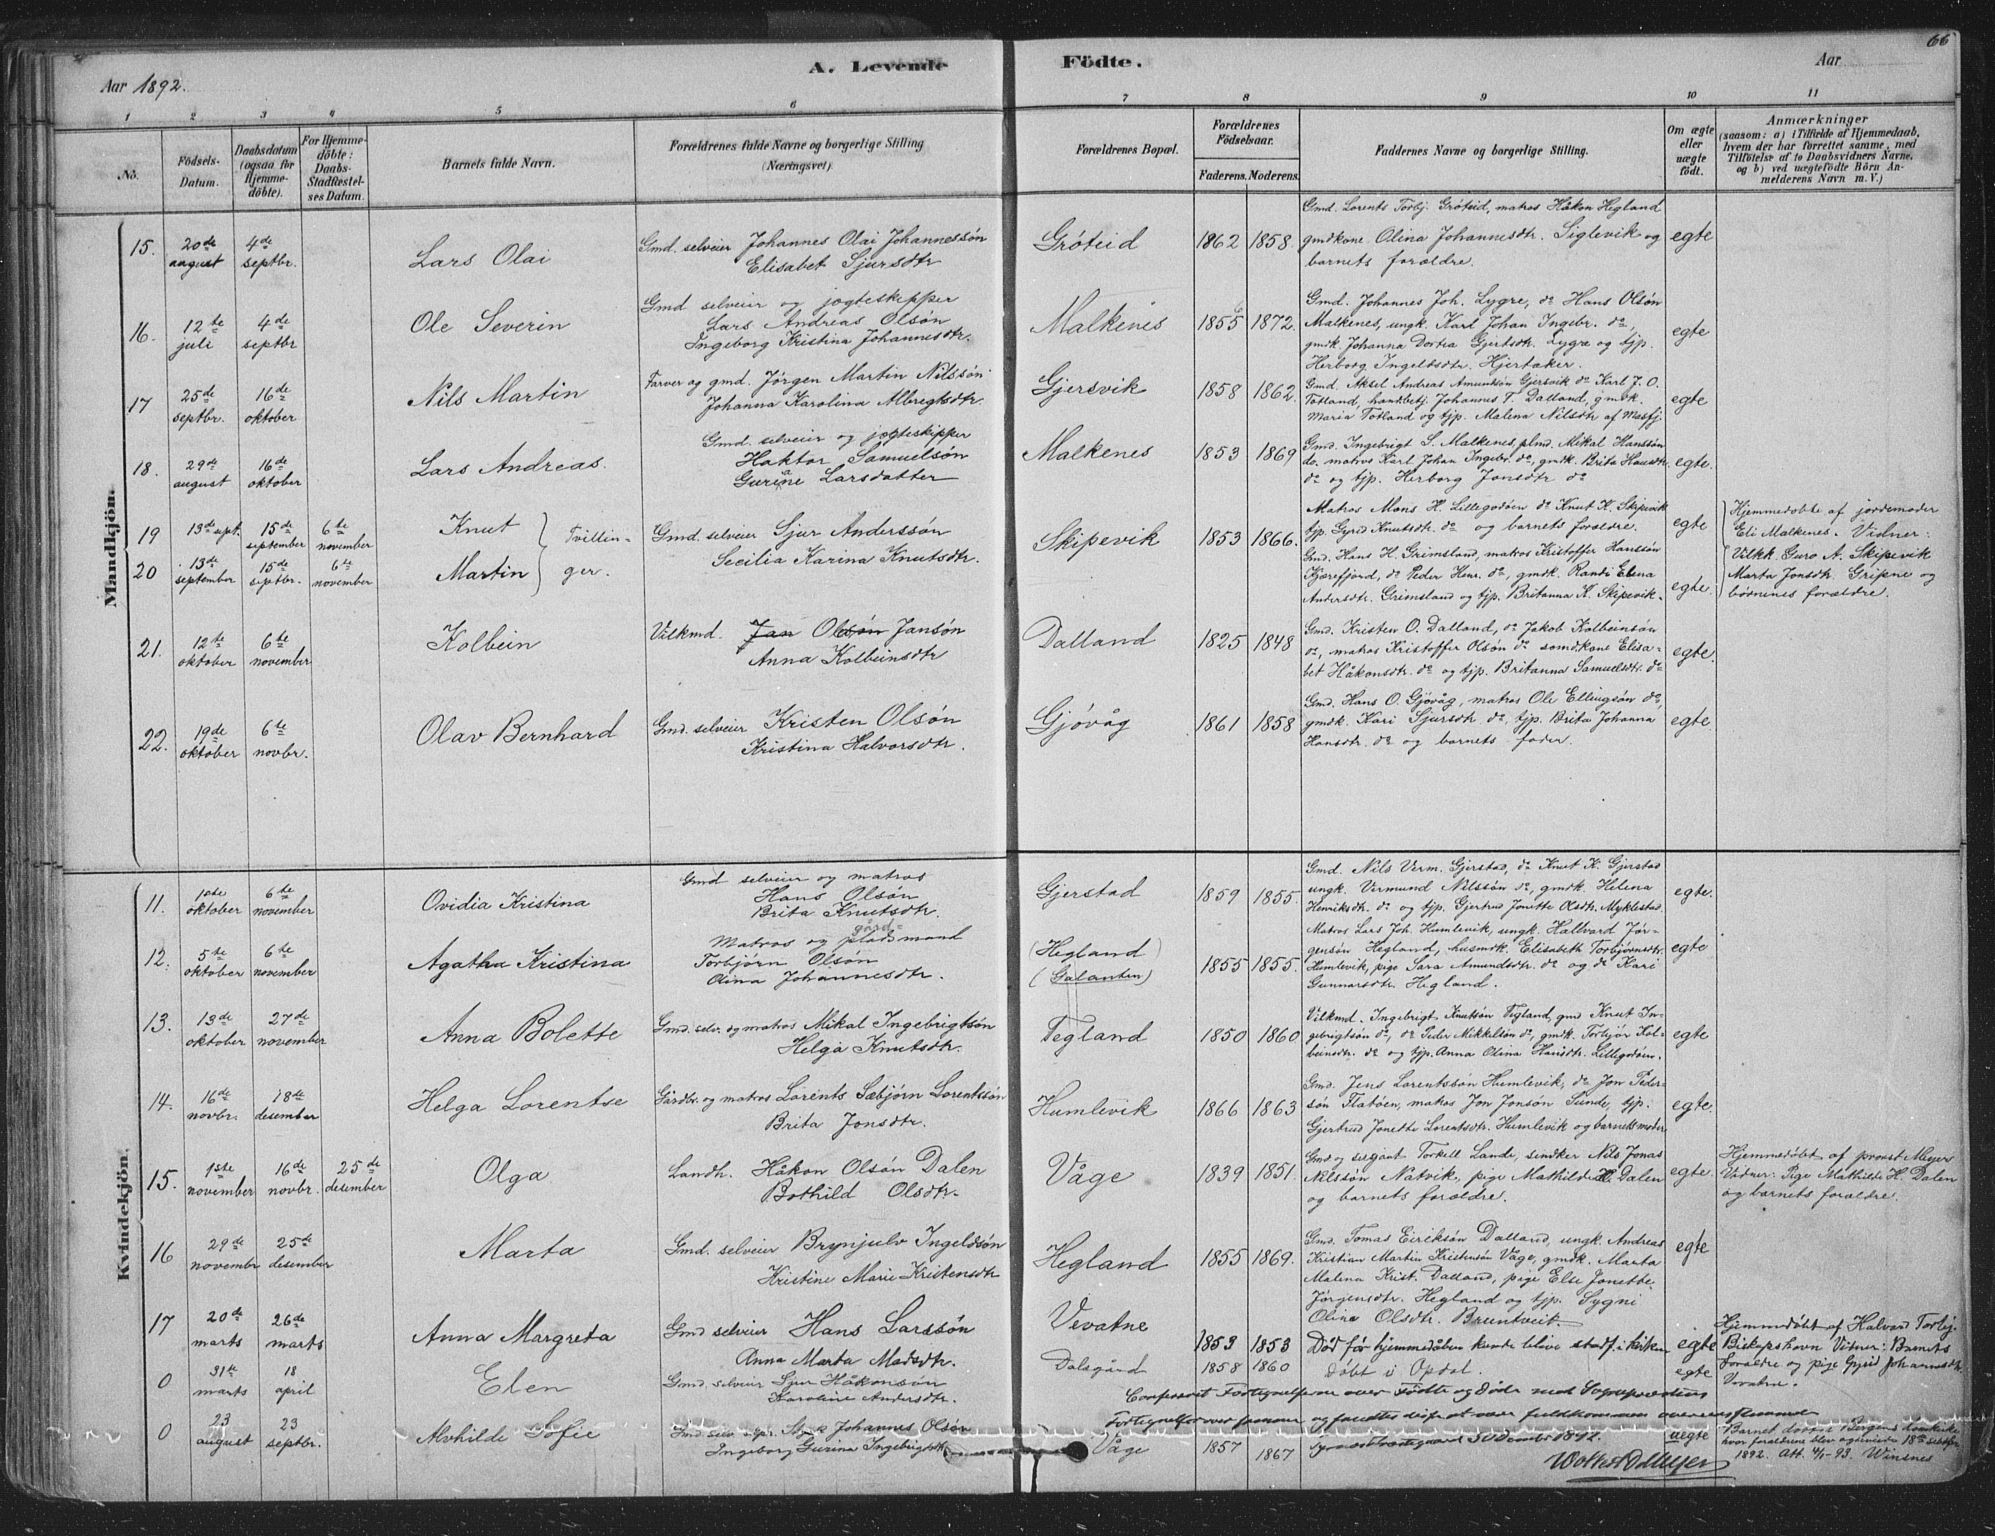 66
A. Levende Födte.
Aar 1892.
Aar
1 2 3 4 5 6 7 8 9 10 11
No.
Födsels-Datum.
Daabsdatum (ogsaa for Hjemmedöbte).
For Hjemmedöbte: Daabs-Stadfæstelses Datum.
Barnets fulde Navn.
Forældrenes fulde Navne og borgerlige Stilling (Næringsvei).
Forældrenes Bopæl.
Forældrenes Födselsaar.
Faderens. Moderens.
Faddernes Navne og borgerlige Stilling.
Om ægte eller uægte födt.
Anmærkninger
(saasom: a) i Tilfælde af Hjemmedaab, hvem der har forrettet samme, med Tilföielse af to Daabsvidners Navne, og b) ved uægtefödte Börn Anmelderens Navn m. V.)
Mandkjön.
15. 20de august 4de septbr. Lars Olai
Gmd. selveier Johannes Olai Johannessön
Elisabet Sjursdtr
Gröteid 1862 1858.
Gmd. Lorents Torbj. Gröteid, matros Håkon Hegland
gmdkone Olina Johannesdtr. Siglevik og
barnets forældre.
egte
16. 12te juli 4de septbr Ole Severin
Gmd selveier og jogteskipper
Lars Andreas Olsön
Ingeborg Kristina Johannesdtr.
Malkenes 1855 1872.
Gmd. Johannes Joh. Lygre, do Hans Olsön
Malkenes, ungk. Karl Johan Ingebr. do,
gmdk. Johanna Dortea Gjertsdtr. Lygre og tjp.
Herborg Ingeldsdtr. Hjertaker.
egte
17 25de septbr. 16de oktober Nils Martin
Farver og gmd. Jörgen Martin Nilssön
Johanna Karolina Albregtsdtr.
Gjersvik 1858 1862.
Gmd. Aksel Andreas Amundsön Gjersvik do Karl J. O.
Totland, handbetj. Johannes T. Dalland, gmdk.
Maria Totland og tjp. Malena Nilsdtr af Masfj.
egte
18. 29de august 16de oktober Lars Andreas.
Gmd. selveier og jogteskipper
Haktor Samuelsön
Gurine Larsdatter
Malkenes 1853 1869
Gmd. Ingebrigt S. Malkenes, plmd. Mikal Hanssön
do. matros Karl Johan Ingebr. do, gmdk. Brita Hansdtr.
do og tjp. Herborg Jonsdtr do
egte.
19 13de spt. 15de september 6te november Knut
20 13de september 15de septbr. 6te november Martin
Tvillinger.
Gmd. selveier Sjur Anderssön
Secilia Karina Knutsdtr.
Skipevik 1853 1866.
Matros Mons H. Lillegodöen do Knut K. Skipevik
tjp. Gyrid Knutsdtr. do og barnets forældre.
Gmd. Hans H. Grimsland, matros Kristoffer Hanssön
Kjærefjord, do Peder Henr. do, gmdk. Randi Elena
Andersdtr. Grimsland og tjp. Britanna K. Skipevik.
egte
egte.
Hjemmedöbte af jordemoder
Eli Malkenes. Vidner:
Vilkk. Guro A. Skipevik
Marta Jonsdtr. Gripne og
börnenes forældre.
21. 12te oktober 6te november. Kolbein
Vilkmd. Jan Olsön Jansön
Anna Kolbeinsdtr
Dalland 1825 1848
Gmd. Kristen O. Dalland, do Jakob Kolbeinsön
do, matros Kristoffer Olsön do somdkone Elisabet
Håkonsdtr. do og tjp. Britanna Samuelsdtr. do
egte.
22. 19de oktober 6te novbr. Olav Bernhard
Gmd. selveier Kristen Olsön
Kristina Halvorsdtr.
Gjövåg 1861 1858
Gmd. Hans O. Gjövåg, matros Ole Ellingsön do,
gmdk. Kari Sjursdtr do, tjp. Brita Johanna
Hansdtr. do og barnets fader.
egte.
Kvindekjön.
11. 1ste oktober 6te november Ovidia Kristina
Gmd selveier og matros
Hans Olsön
Brita Knutsdtr.
Gjerstad 1859 1855.
Gmd. Nils Verm. Gjerstad, do Knut K. Gjerstad
ungk. Vermund Nilssön do, gmdk. Helena
Henriksdtr. do og tjp. Gjertrud Jonette Olsdtr. Myklestad.
egte.
12. 5te oktober 6te november Agatha Kristina
Matros og pladsmand
gård-
Torbjörn Olsön
Olina Johannesdtr.
(Hegland)
(Galanten)
1855 1855.
Matros Lars Joh. Humlevik, ungk. Hallvard Jörgensön
Hegland, husmdk. Elisabeth Torbjörnsdtr.
Humlevik, pige Sara Amundsdtr. do og do Kari
Gunnarsdtr. Hegland.
egte
13. 13de oktober 27de november Anna Bolette
Gmd. selv. og matros Mikal Ingebrigtsön
Helga Knutsdtr.
Tegland 1850 1860
Vilkmd. Ingebrigt Knutsön Tegland, gmd Knut Ingebrigtsön
do, do Peder Mikkelsön do, gmdk. Torbjör Kolbeinsdtr.
do og tjp. Anna Olina Hansdtr. Lillegodöen.
egte
14. 16de novbr. 18de desember Helga Lorentse
Gårdbr. og matros Lorents Sæbjörn Lorentssön
Brita Jonsdtr.
Humlevik 1866 1863
Gmd. Jens Lorentssön Humlevik, do Jon Pedersön
Flatöen, matros Jon Jonsön Sunde, tjp.
Gjertrud Jonette Lorentsdtr. Humlevik og barnets moder
egte.
15. 1ste november 16de novbr. 25de desember Olga
Landh. Håkon Olsön Dalen
Bothild Olsdtr.
Våge 1839 1851.
Gmd og sergeant Torkell Lande, sendker Nils Jonas
Nilssön Natvik, pige Mathilde H. Dalen
og barnets forældre.
egte.
Hjemmedöbt af provst Meyer
Vidner: Pige Mathilde H. Dalen
og barnets forældre.
16 29de novembr 25de desember Marta
Gmd. selveier Brynjulv Ingeldsön
Kristine Marie Kristensdtr
Hegland 1855 1869.
Gmd. Tomas Eiriksön Dalland, ungk. Andreas
Kristian Martin Kristensön Våge, gmdk. Marta
Malena Krist. Dalland, pige Else Jonette
Jörgensdtr. Hegland og tjp. Sygni
Olina Olsdtr. Bruntveit.
egte
17 20de marts 26de marts Anna Margreta
Gmd selveier Hans Larssön
Anna Marta Madsdtr.
Vevatne 1853 1853
Död för hjemmedåben kunde blive stadf. i kirken
egte
Hjemmedöbt af Halvard Torbj.
Bispeshovn Vitner: Barnets
Forældre og pige Gjyrid Johannesdtr
Vevatne.
0 31te marts 18 april Elen
Gmd. selveier Sjur Håkonsön
Karoline Andersdtr.
Dalsgård 1858 1860
Döbt i Opdal.
egte
Confereret Fortegnelserne over Födte og Döde med Sogneprestens
0 23 august 23 septbr. Alvhilde Sofie
Johannes Olsön
Ingeborg Gurina Ingebrigtsdtr
Våge 1857 1867
uegte
Barnet döbt i Bergens Domkirke
hvor forældrene blev 18de septbr
1892. Att. 4/1-93. Winsnes